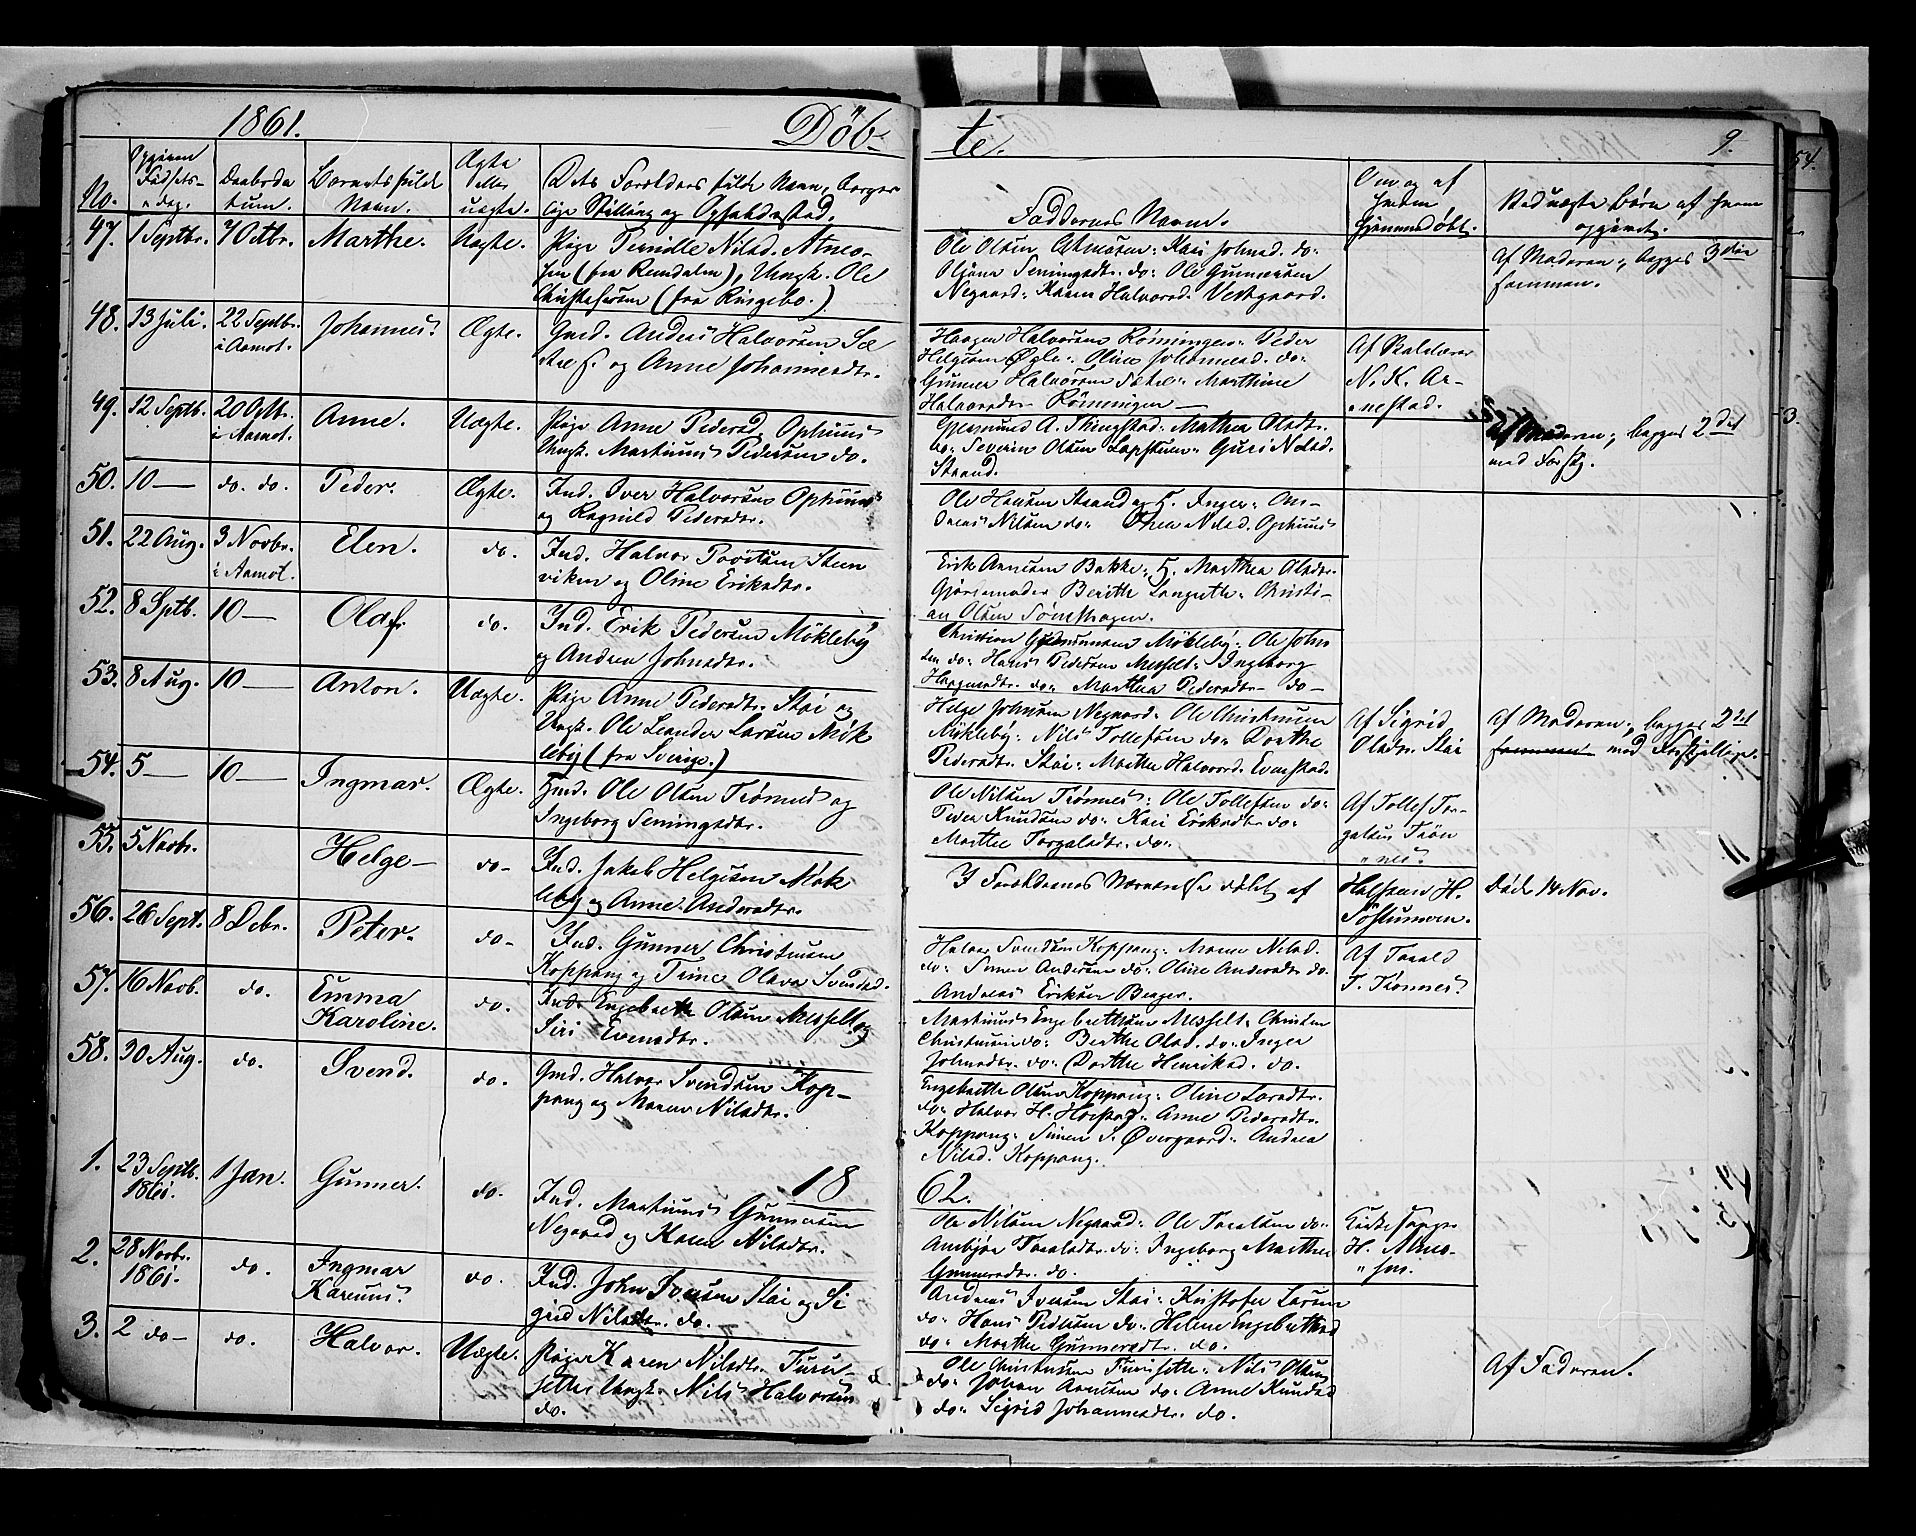 1861.
Döb-
te.
9.
54.
No.
Opgiven Fødsels-dag.
Daabsda tum.
Barnets fulde Navn.
Ægte eller uægte.
Dets Forældres fulde Navn, borger
lige Stilling og Opholdssted.
Faddernes Navne.
Om og af hvem hjemmedøbt.
Ved uægte Børn af hvem opgivet.
47.
1 Septbr.
7 Octbr.
Marthe.
Uægte.
Pige Pernille Nilsd. Atmo-
hen (fra Rendalen), Ungk. Ole
Christophersen (fra Ringebo.)
Ole Olsen Atmoen: Kari Johnsd. do:
Oljana Semingsdtr. do: Ole Gunnersen
Negaard: Karen Halvorsd. Vestgaard.
Af Moderen; begges 3die
Leierm.
48.
13 Juli.
22 Septbr.
i Aamot.
Johannes.
Ægte.
Gmd. Anders Halvorsen Sæ
tre E. og Anne Johannesdtr.
Haagen Halvorsen Rønningen: Peder
Helgesen Øgle: Oline Johannesd. do:
Gunner Halvorsen Sætre: Marthine
Halvorsdtr. Rønningen —
Af Skolelærer
N. K. Ar-
nestad.
49.
12 Septb.
20 Octbr.
i Aamot.
Anne.
Uægte.
Pige Anne Pedersd. Ophuus
Ungk. Martinus Pedersen do.
Gjermund A. Stingstad: Mathea Olsdtr.
do: Severin Olsen: Guri Nilsd.
Strand.
Af Moderen; begges 2det
med Forskj.
3.
50.
10 —
do. do.
Peder.
Ægte.
Ind. Iver Halvorsen Ophuus
og Ragnild Pedersdtr.
Ole Hansen Strand og H. Inger: An-
dreas Nilsen do: Thea Nilsd. Ophuus
51.
22 Aug.
3 Novbr.
i Aamot.
Elen.
do.
Ind. Halvor Povelsen Steen
viken og Oline Eriksdtr.
Erik Arnesen Bakke: H. Marthea Olsdtr.
Gjordemoder Berithe Langseth: Christi-
an Olsen
52.
8 Sptb.
10 —
Olaf.
do.
Ind. Erik Pedersen Møkleby
og Andrea Johnsdtr.
Christian Gudmunsen Møkleby: Ole John
sen do: Hans Pedersen Messelt: Ingeborg
Haagensdtr. do: Marthea Pedersdtr. do —
53.
8 Aug.
10 —
Anton.
Uægte.
Pige Anne Pedersdtr. Stai og
Ungk. Ole Leander Larsen Møk
leby (fra Sverige.)
Helge Johnsen Negaard: Ole Christensen
Møkleby: Nils Tollefsen do: Dorthe
Pedersdtr. Stai: Marthe Halvorsd. Evenstad.
Af Sigrid
Olsdtr. Stai
Af Moderen; begges 2det
med Forskjellige.
54.
5 —
10 —
Ingmar.
Ægte.
Hmd. Ole Olsen Trønnes og
Ingeborg Semingsdtr.
Ole Nilsen Trønnes: Ole Tollefsen do:
Peder Knudsen do: Kari Eriksdtr. do:
Marthe Torgalsdtr. do:
Af Tollef Tor-
galsen Trøn
nes.
55.
5 Novbr.
Helge —
do —
Ind. Jakob Helgesen Møk
leby og Anne Andersdtr.
I Forældrenes Nærværelse døbt af
Halsten H.
Død 14 Nov.
56.
26 Sept.
8 Debr.
Peter.
do —
Ind. Gunner Christensen
Koppang og Trine Olava Svendsd.
Halvor Svendsen Koppang: Maren Nilsd.
do: Simen Andersen do: Oline Andersdtr. do.
Andreas Eriksen Berger.
Af Torald
T. Trønnes.
57.
16 Novb.
do.
Emma
Karoline.
do.
Ind. Engebreth Olsen Messelt og
Siri Evensdtr.
Martinus Engebrethsen Messelt: Christen
Christensen do: Berthe Olsd. do: Inger
Johnsdtr. do: Dorthe Henriksd. do.
58.
30 Aug.
do.
Svend.
do.
Gmd. Halvor Svendsen Kop-
pang og Maren Nilsdtr.
Engebreth Olsen Koppang: Oline Larsdtr.
do: Halvor H. Horstad: Anne Pedersdtr.
Koppang: Simen S. Øvergaard: Andrea
Nilsd. Koppang.
1862.
1.
23 Septb.
1861.
1 Jan.
Gunner.
do.
Ind. Martinus Gunnersen
Negaard og Karen Nilsdtr.
Ole Nilsen Negaard: Ole Toralsen do:
Ambjør Toralsdtr. do: Ingeborg Marthea
Gunnersdtr. do.
Kirkesanger
H. Atmo-
hen.
2.
28 Novbr.
1861.
do.
Ingmar
Karenus.
do.
Ind. John Iversen Stai og Si
grid Nilsdtr. do.
Andreas Iversen Stai: Kristofer Larsen
do: Hans Pedersen do: Helene Engebrethsd.
do: Marthe Gunnersdtr. do.
3.
2 do —
do.
Halvor.
Uægte.
Pige Karen Nilsdtr. Furu-
sethe Ungk. Nils Halvorsen
do.
Ole Christensen Furusethe: Nils Olsen
do: Johan Arnesen do: Anne Knudsd.
do: Sigrid Johannesdtr. do.
Af Faderen.